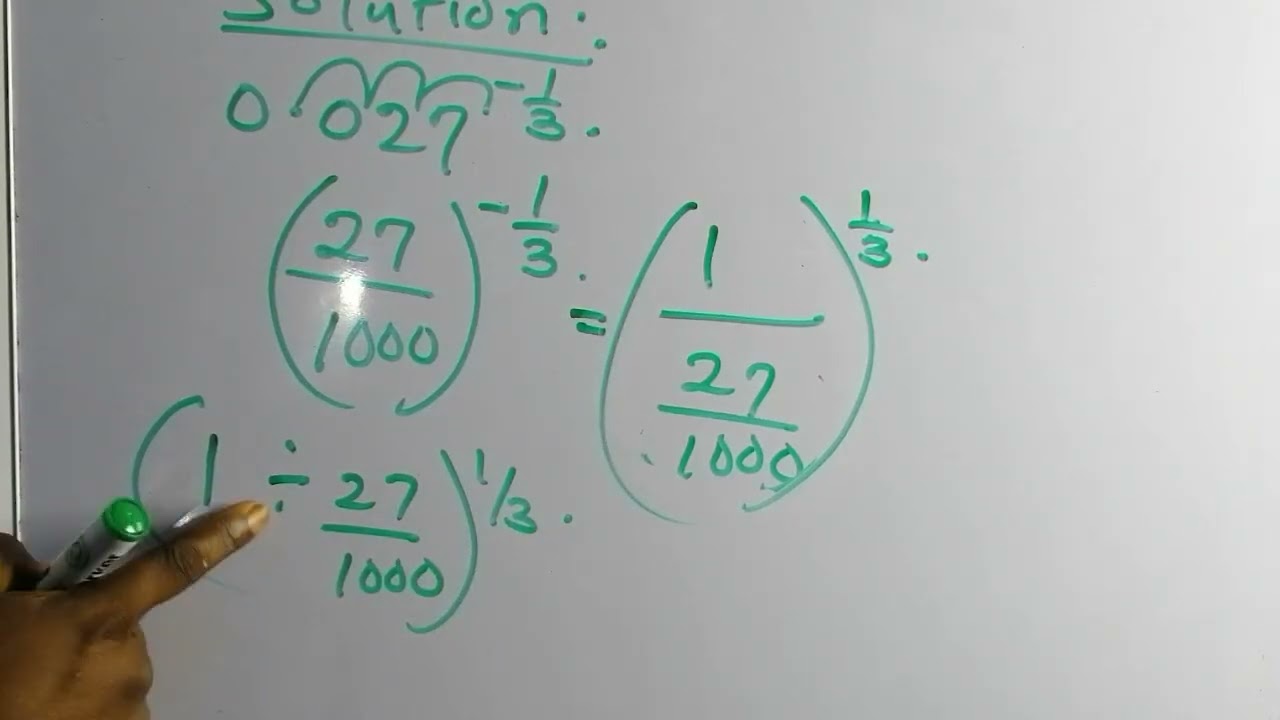 Solution:
0.027^-1/3.
(27/1000)^-1/3. = (1/(27/1000))^1/3.
(1 ÷ 27/1000)^1/3.